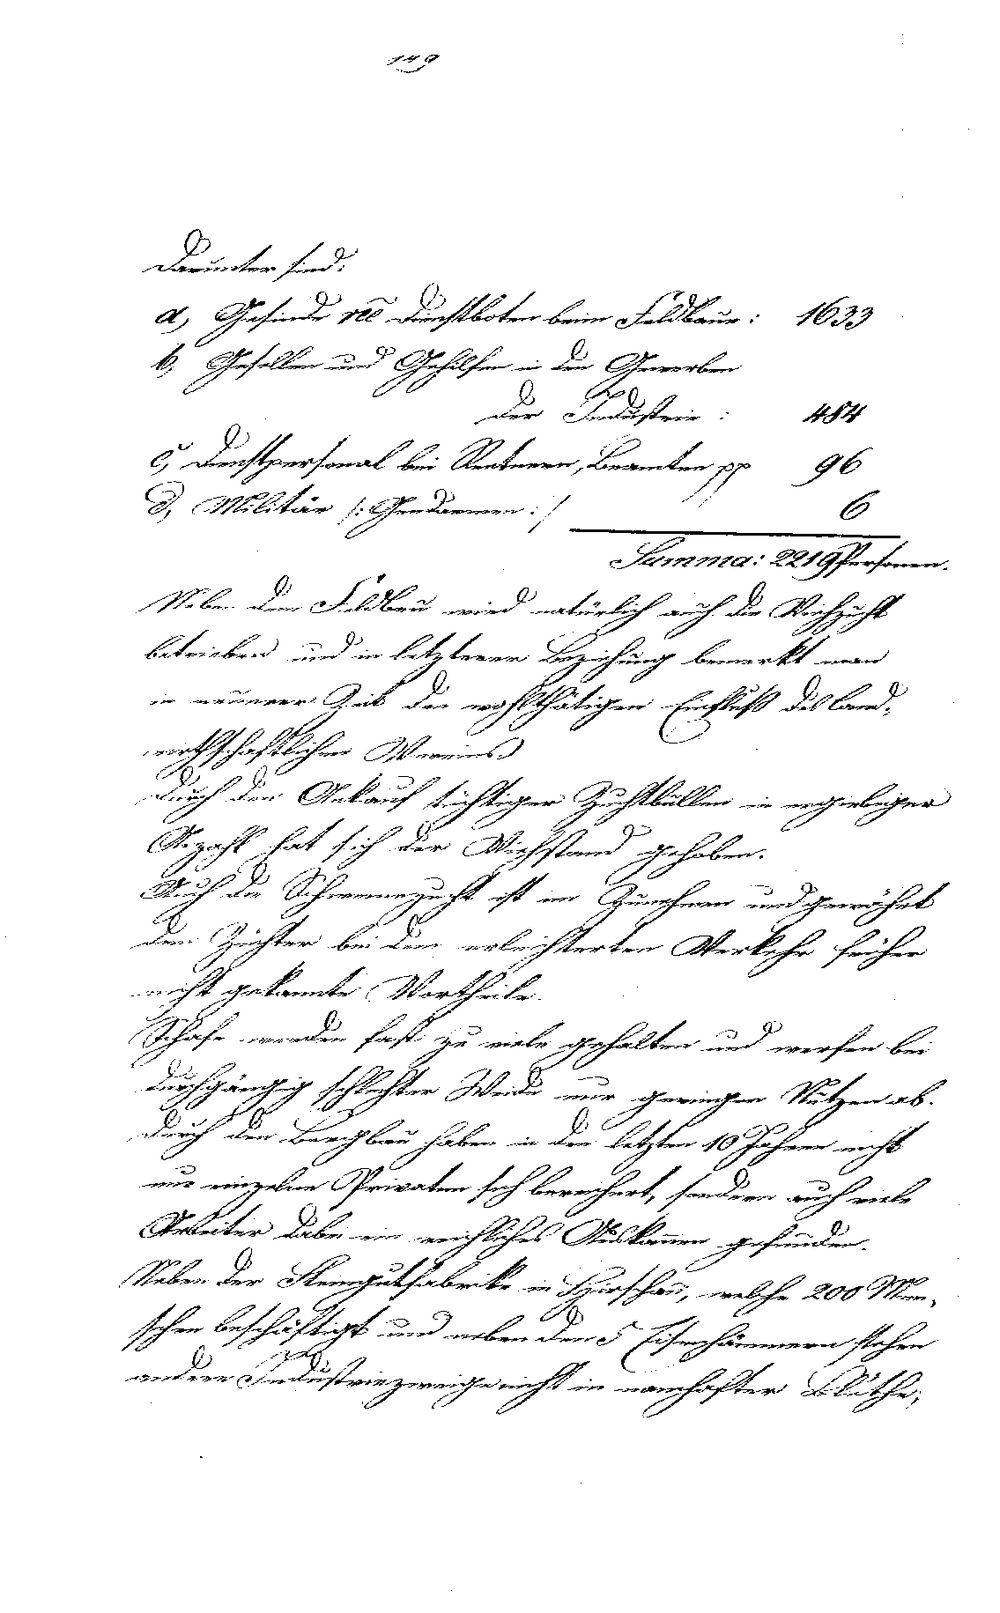 149
Darunter sind:
a, Gesinde rec Dienstboten beim Feldbaue: 1633
b, Gesellen und Gehilfen in den Gewerben
der Industrie: 484
c, Dienstpersonal bei Rentnern, Beamten pp 96
d, Militär /: Gendarmen :/ 6
Summa: 2219 Personen.
Neben dem Feldbau wird natürlich auch die Viehzucht
betrieben und in letzterer Beziehung bemerkt man
in neuerer Zeit den wohlthätigen Einfluß des land-
wirthschaftlichen Vereins
Durch den Ankauf tüchtiger Zuchtbullen in ergiebiger
Anzahl hat sich der Viehstand gehoben.
Auch die Schweinezucht ist im Zunehmen und gewährt
den Züchter bei dem erleichterten Verkehr früher
nicht gekannte Vortheile.
Schafe werden fast zu viele gehalten und werfen bei
durchgängig schlechter Weide nur geringen Nutzen ab.
Durch den Bergbau haben in den letzten 10 Jahren nicht
nur einzelne Privaten sich bereichert, sondern auch viele
Arbeiter dabei ein reichliches Auskommen gefunden.
Neben der Steingutfabrike in Hirschau, welche 200 Men-
schen beschäftigt und neben den 5 Eisenhämmern stehen
andere Industriezweige nicht in namhafter Blüthe;